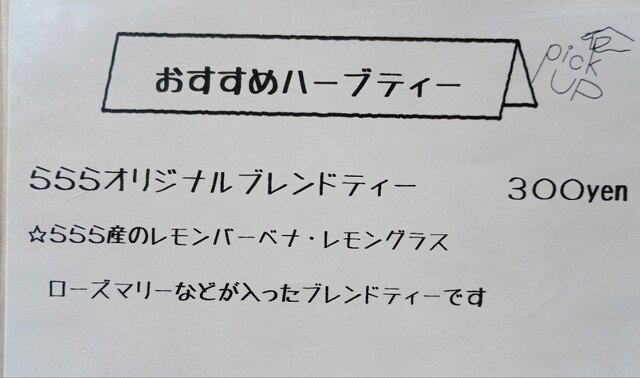 おすすめハーブティー
pick
UP
らららオリジナルブレンドティー 300yen
☆ららら産のレモンバーベナ・レモングラス
ローズマリーなどが入ったブレンドティーです